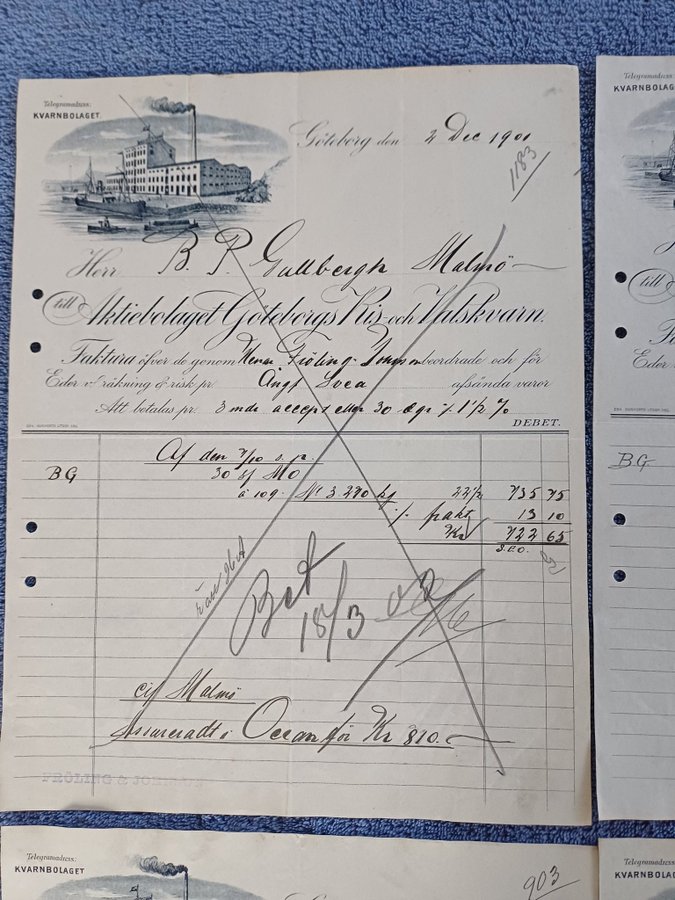 Telegramadress:
KVARNBOLAGET.
Göteborg den 2 Dec 1901
1183
Herr B. P. Gullbergh Malmö
till Aktiebolaget Göteborgs Ris och Valskvarn.
Faktura öfver de genom Herrar Fröling beordrade och för
Eder v. räkning & risk pr. Ångf Svea afsända varor
Att betalas pr. 3 mdr accept eller 30 dgr 1 1/2 %
DEBET.
Af den
BG 30 sf MO
à 109 - N° 3.270 kg 22 1/2 735 75
% frakt 13 10
Kr 722 65
S.E.O.
Bet
18/3 02
cif Malmö
Assureradt i Ocean för Kr 810.
FRÖLING &
Telegramadress:
KVARNBOLAGET
903
Telegramadress
KVARNBOLAG
till
BG
Telegramadress
KVARNBOLAGE